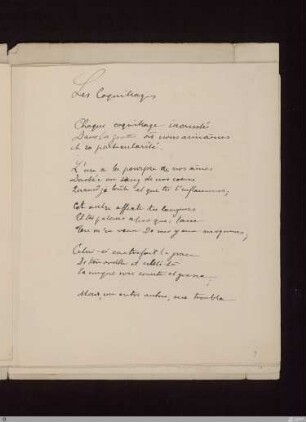 Les Coquillages
Chaque coquillage incrusté
Dans la grotte où nous aimâmes
A sa particularité.
L'un a la pourpre de nos âmes
Dérobée au sang de nos cœurs
Quand je brûle et que tu t'enflammes;
Cet autre affecte tes langueurs
Et tes pâleurs alors que, lasse
Tu m'en veux de mes yeux moqueurs;
Celui-ci contrefait la grâce
De ton oreille et celui-là
Ta nuque rose courte et grasse;
Mais un entre autres, me troubla